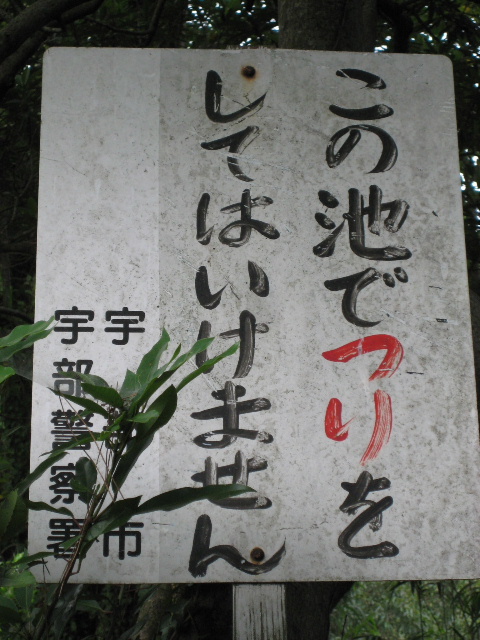 この池でつりを
してはいけません
宇 市
宇部警察署